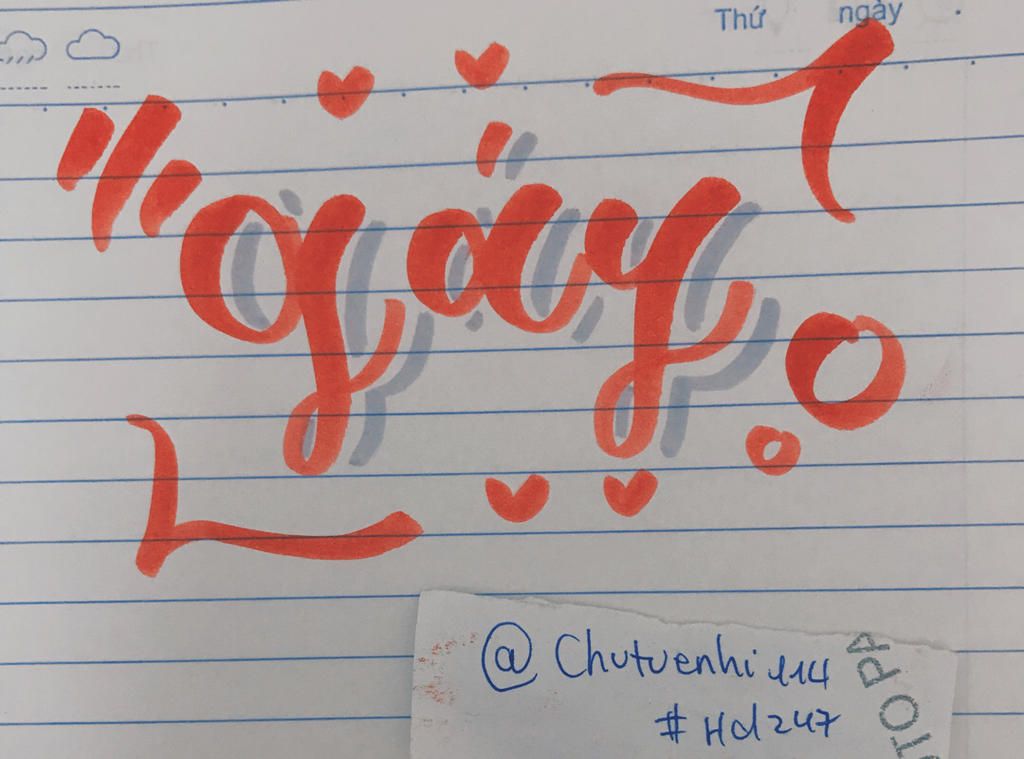 Thứ ngày
gáy
@Chutuenhi114
#Hd247
TO PA